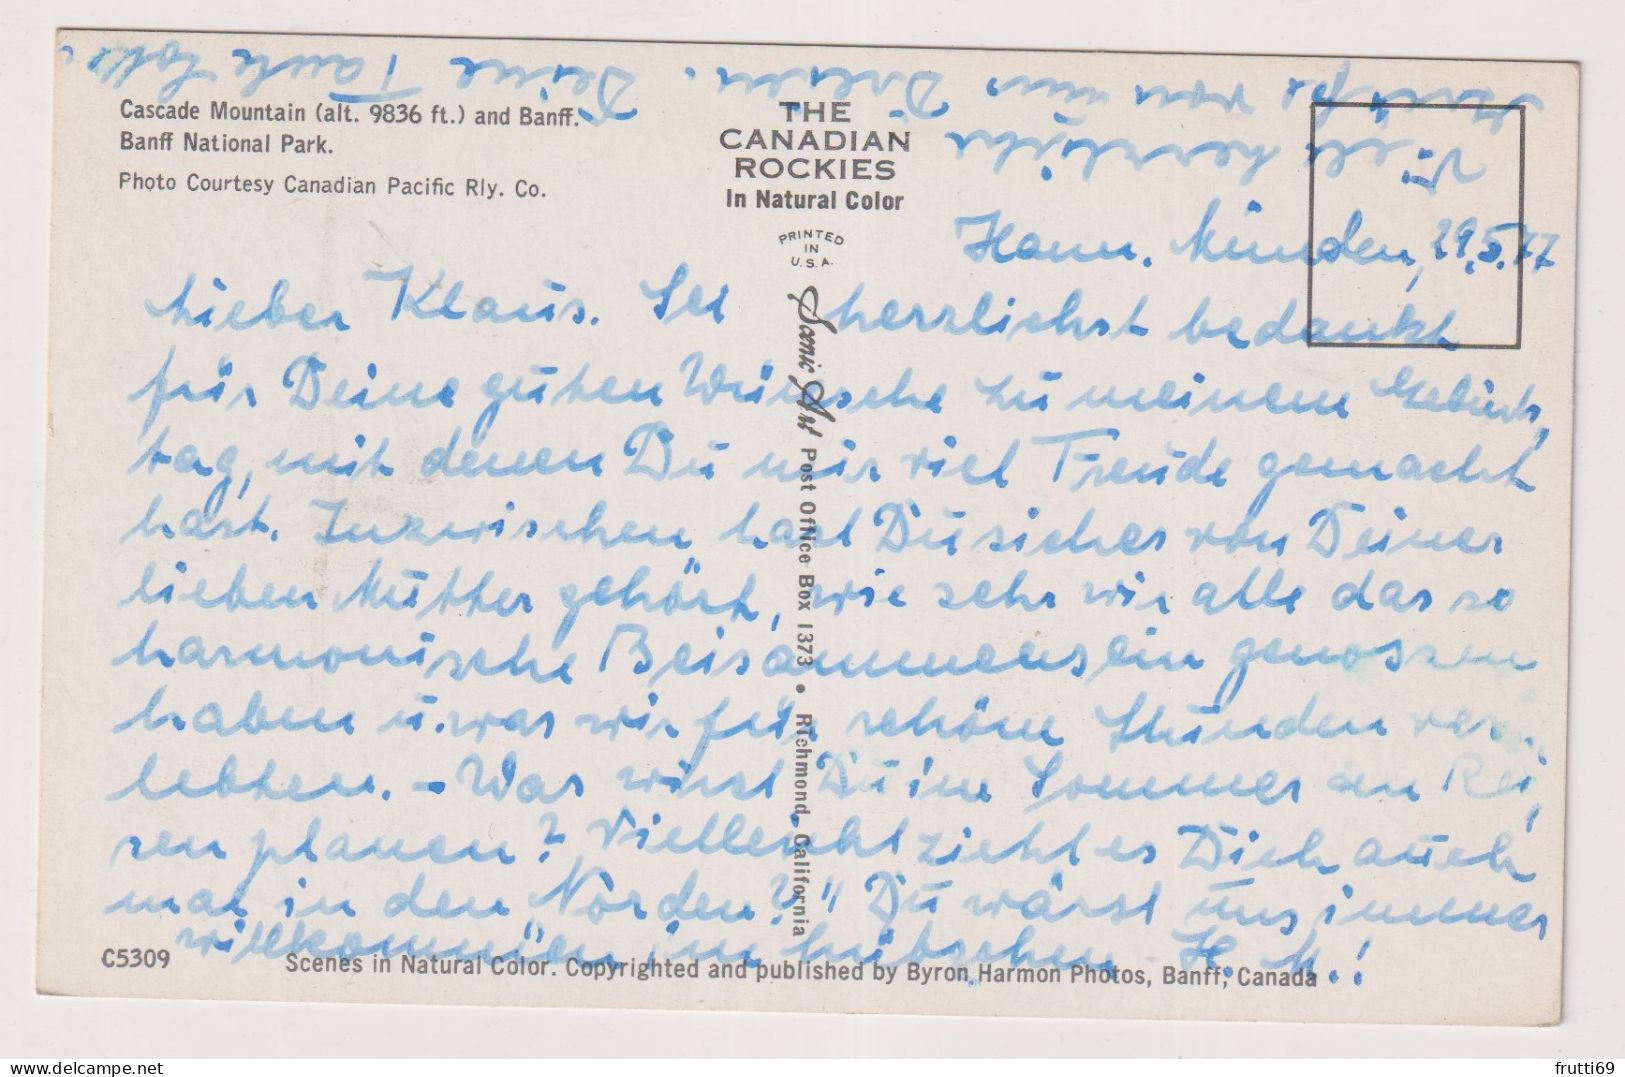 Cascade Mountain (alt. 9836 ft.) and Banff.
Banff National Park.
Photo Courtesy Canadian Pacific Rly. Co.
THE
CANADIAN
ROCKIES
In Natural Color
PRINTED
IN
U.S.A.
Scenic Art Post Office Box 1373 • Richmond, California
Hann. Münden, 29.5.77
Lieber Klaus. Sei herzlichst bedankt
für Deine guten Wünsche zu meinem Geburts,
tag, mit denen Du mir viel Freude gemacht
hast. Inzwischen hast Du sicher von Deiner
lieben Mutter gehört, wie sehr wir alle das so
harmonische Beisammensein genossen
haben u. was wir für schöne Stunden ver,
lebten. - Was wirst Du im Sommer an Rei,
sen planen? Vielleicht zieht es Dich auch
mal in den Norden?" Du wärst uns immer
willkommen im hübschen H. M.!
Viele herzliche
Grüße von uns Dreien. Deine Tante Lotte.
C5309
Scenes in Natural Color. Copyrighted and published by Byron Harmon Photos, Banff, Canada
frutti69
delcampe.net